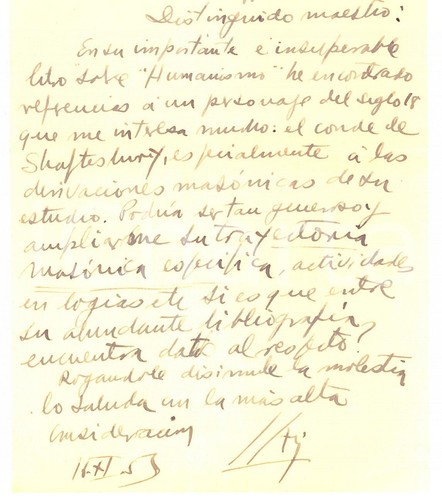 Distinguido maestro:
En su importante e insuperable
libro sobre "Humanismo" he encontrado
referencias á un personaje del siglo 18
que me interesa mucho: el conde de
Shaftesbury, especialmente á las
derivaciones masónicas de su
estudio. Podría ser tan generoso y
ampliarme su trayectoria
masónica específica, actividades
en logias etc si es que entre
su abundante bibliografía
encuentra dato al respecto?
Rogandole disimule la molestia
lo saluda con la más alta
consideracion